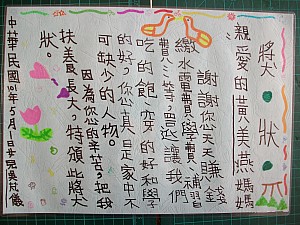 獎狀
親愛的黃美燕媽媽
謝謝您天天賺錢
繳水電費、學費、補習
費…等,還讓我們
吃的飽、穿的好和學
的好,您真是家中不
可缺少的人物。
因為您的辛苦,把我
扶養長大,特頒此獎
狀。
中華民國101年5月1日